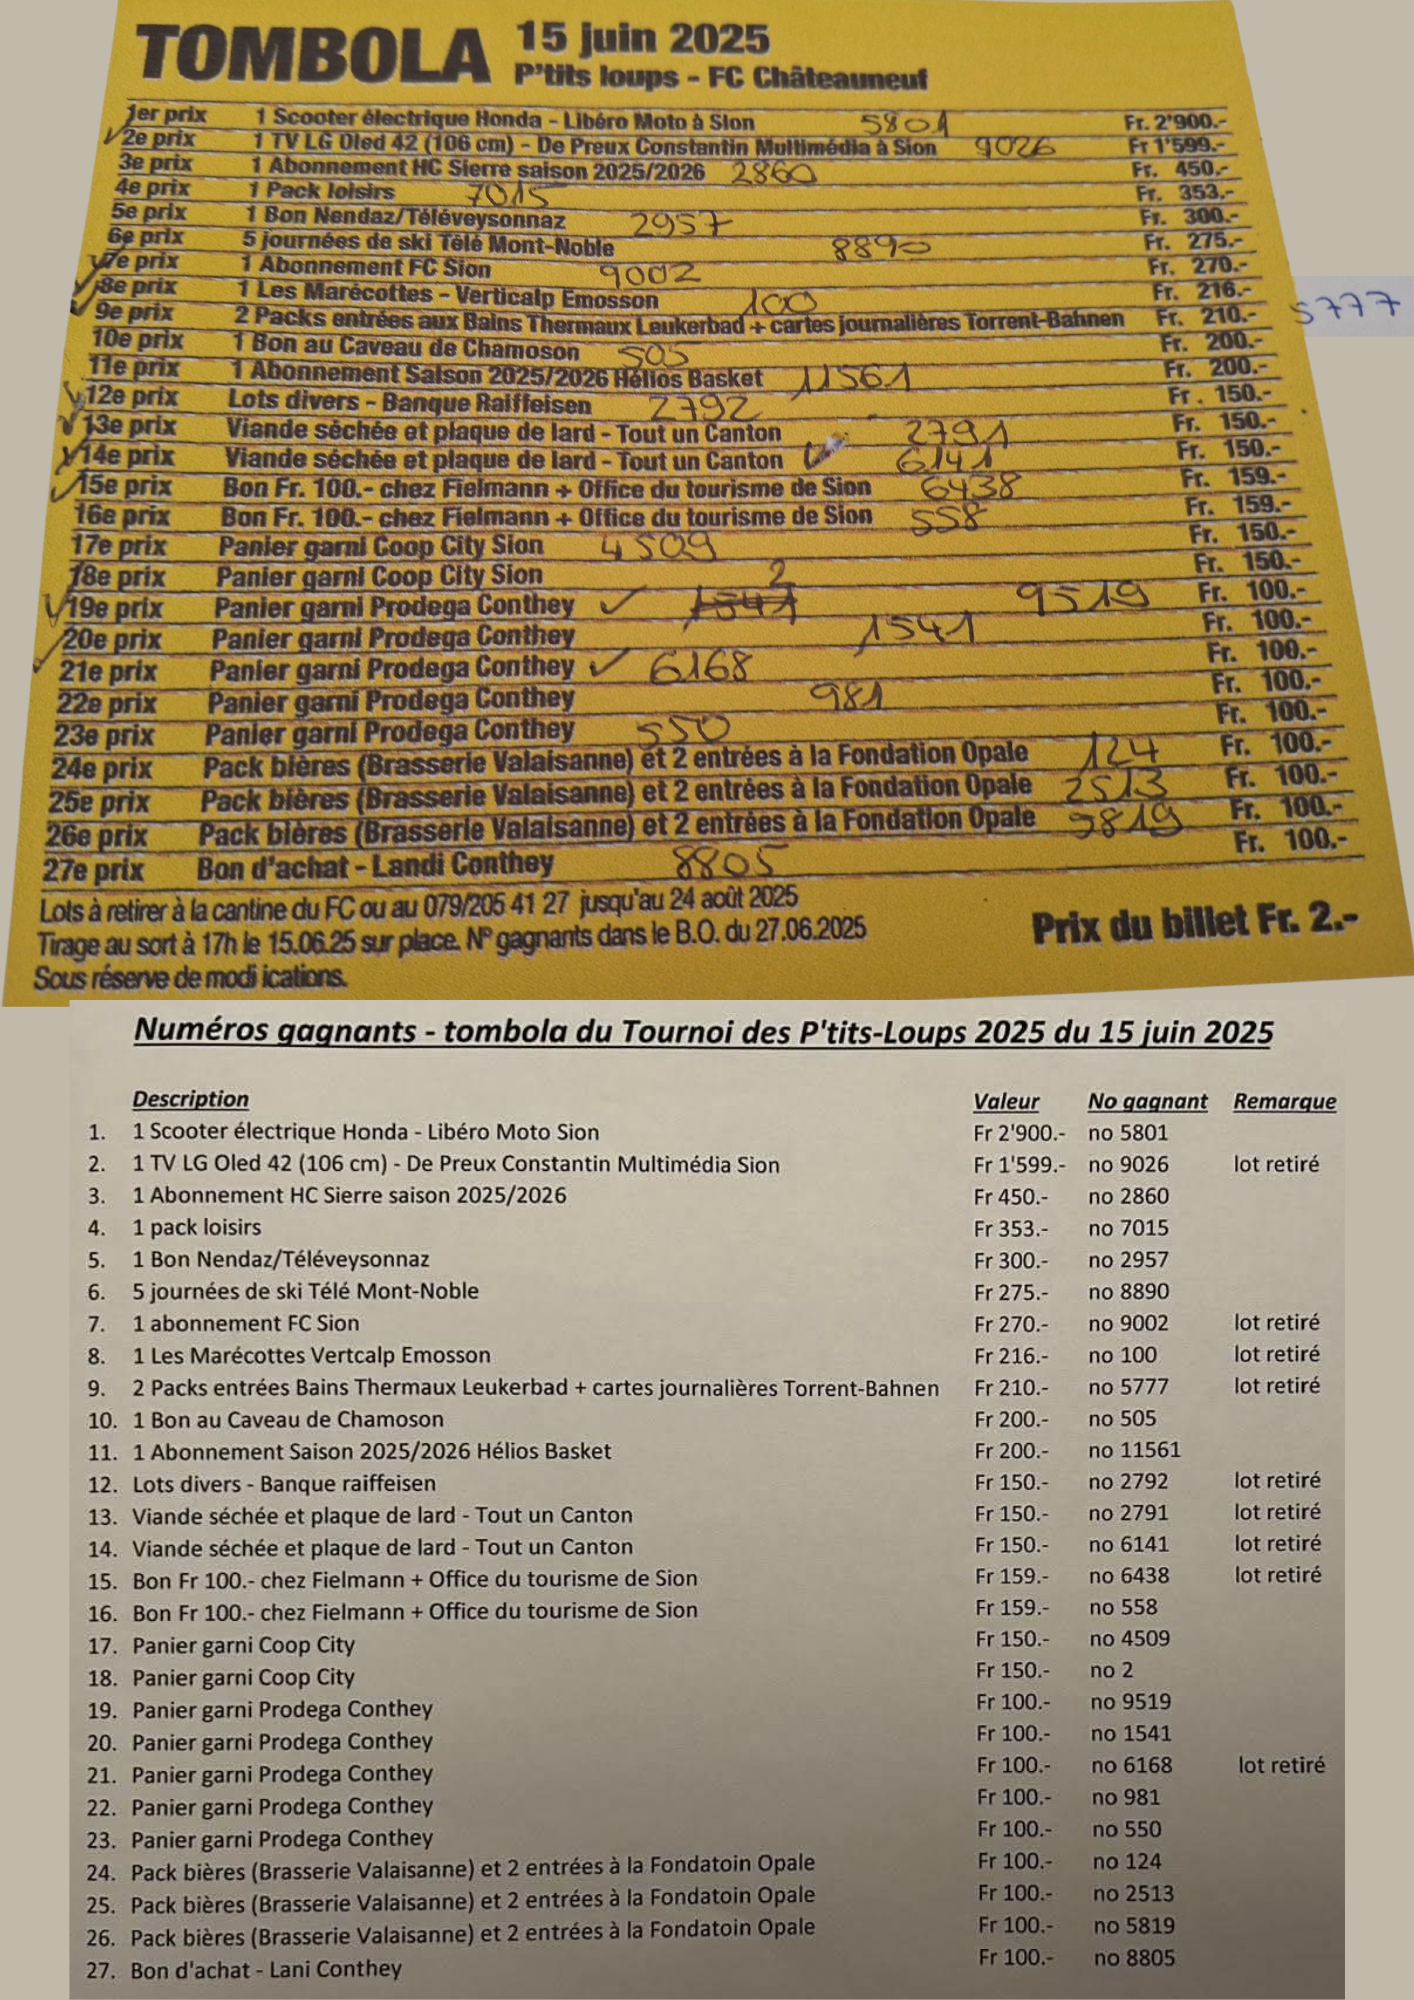 TOMBOLA 15 juin 2025
P'tits loups - FC Châteauneuf
1er prix 1 Scooter électrique Honda - Libéro Moto à Sion 5801 Fr. 2'900.-
2e prix 1 TV LG Oled 42 (106 cm) - De Preux Constantin Multimédia à Sion 9026 Fr 1'599.-
3e prix 1 Abonnement HC Sierre saison 2025/2026 2860 Fr. 450.-
4e prix 1 Pack loisirs 7015 Fr. 353.-
5e prix 1 Bon Nendaz/Téléveysonnaz 2957 Fr. 300.-
6e prix 5 journées de ski Télé Mont-Noble 8890 Fr. 275.-
7e prix 1 Abonnement FC Sion 9002 Fr. 270.-
8e prix 1 Les Marécottes - Verticalp Emosson 100 Fr. 216.-
9e prix 2 Packs entrées aux Bains Thermaux Leukerbad + cartes journalières Torrent-Bahnen Fr. 210.- 5777
10e prix 1 Bon au Caveau de Chamoson 505 Fr. 200.-
11e prix 1 Abonnement Saison 2025/2026 Hélios Basket 11561 Fr. 200.-
12e prix Lots divers - Banque Raiffeisen 2792 Fr. 150.-
13e prix Viande séchée et plaque de lard - Tout un Canton 2791 Fr. 150.-
14e prix Viande séchée et plaque de lard - Tout un Canton 6141 Fr. 150.-
15e prix Bon Fr. 100.- chez Fielmann + Office du tourisme de Sion 6438 Fr. 159.-
16e prix Bon Fr. 100.- chez Fielmann + Office du tourisme de Sion 558 Fr. 159.-
17e prix Panier garni Coop City Sion 4509 Fr. 150.-
18e prix Panier garni Coop City Sion 2 Fr. 150.-
19e prix Panier garni Prodega Conthey 1541 9519 Fr. 100.-
20e prix Panier garni Prodega Conthey 1541 Fr. 100.-
21e prix Panier garni Prodega Conthey 6168 Fr. 100.-
22e prix Panier garni Prodega Conthey 981 Fr. 100.-
23e prix Panier garni Prodega Conthey 550 Fr. 100.-
24e prix Pack bières (Brasserie Valaisanne) et 2 entrées à la Fondation Opale 124 Fr. 100.-
25e prix Pack bières (Brasserie Valaisanne) et 2 entrées à la Fondation Opale 2513 Fr. 100.-
26e prix Pack bières (Brasserie Valaisanne) et 2 entrées à la Fondation Opale 5819 Fr. 100.-
27e prix Bon d'achat - Landi Conthey 8805 Fr. 100.-
Lots à retirer à la cantine du FC ou au 079/205 41 27 jusqu'au 24 août 2025
Tirage au sort à 17h le 15.06.25 sur place. N° gagnants dans le B.O. du 27.06.2025
Prix du billet Fr. 2.-
Sous réserve de modi ications.
Numéros gagnants - tombola du Tournoi des P'tits-Loups 2025 du 15 juin 2025
Description Valeur No gagnant Remarque
1. 1 Scooter électrique Honda - Libéro Moto Sion Fr 2'900.- no 5801
2. 1 TV LG Oled 42 (106 cm) - De Preux Constantin Multimédia Sion Fr 1'599.- no 9026 lot retiré
3. 1 Abonnement HC Sierre saison 2025/2026 Fr 450.- no 2860
4. 1 pack loisirs Fr 353.- no 7015
5. 1 Bon Nendaz/Téléveysonnaz Fr 300.- no 2957
6. 5 journées de ski Télé Mont-Noble Fr 275.- no 8890
7. 1 abonnement FC Sion Fr 270.- no 9002 lot retiré
8. 1 Les Marécottes Vertcalp Emosson Fr 216.- no 100 lot retiré
9. 2 Packs entrées Bains Thermaux Leukerbad + cartes journalières Torrent-Bahnen Fr 210.- no 5777 lot retiré
10. 1 Bon au Caveau de Chamoson Fr 200.- no 505
11. 1 Abonnement Saison 2025/2026 Hélios Basket Fr 200.- no 11561
12. Lots divers - Banque raiffeisen Fr 150.- no 2792 lot retiré
13. Viande séchée et plaque de lard - Tout un Canton Fr 150.- no 2791 lot retiré
14. Viande séchée et plaque de lard - Tout un Canton Fr 150.- no 6141 lot retiré
15. Bon Fr 100.- chez Fielmann + Office du tourisme de Sion Fr 159.- no 6438 lot retiré
16. Bon Fr 100.- chez Fielmann + Office du tourisme de Sion Fr 159.- no 558
17. Panier garni Coop City Fr 150.- no 4509
18. Panier garni Coop City Fr 150.- no 2
19. Panier garni Prodega Conthey Fr 100.- no 9519
20. Panier garni Prodega Conthey Fr 100.- no 1541
21. Panier garni Prodega Conthey Fr 100.- no 6168 lot retiré
22. Panier garni Prodega Conthey Fr 100.- no 981
23. Panier garni Prodega Conthey Fr 100.- no 550
24. Pack bières (Brasserie Valaisanne) et 2 entrées à la Fondatoin Opale Fr 100.- no 124
25. Pack bières (Brasserie Valaisanne) et 2 entrées à la Fondatoin Opale Fr 100.- no 2513
26. Pack bières (Brasserie Valaisanne) et 2 entrées à la Fondatoin Opale Fr 100.- no 5819
27. Bon d'achat - Lani Conthey Fr 100.- no 8805